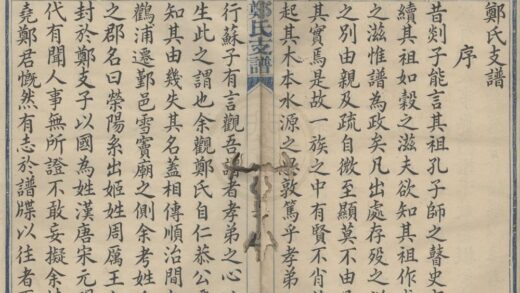 鄭氏支譜
序
昔剡子能言其祖孔子師之瞽史
續其祖如穀之滋夫欲知其祖作
之滋惟譜為政矣凡出處存歿之
之別由親及疏自微至顯莫不由
其實焉是故一族之中有賢不肖
起其木本水源之敦篤乎孝弟
鄭氏支譜
行蘇子有言觀吾譜者孝弟之心
生此之謂也余觀鄭氏自仁恭公
知其由幾失其名蓋相傳順治間
鸛浦遷鄞邑雪竇廟之側余考姓
之郡名曰榮陽系出姬姓周厲王
封於鄭支子以國為姓漢唐宋元
代有聞人事無所證不敢妄擬余
堯鄭君慨然有志於譜牒以往者